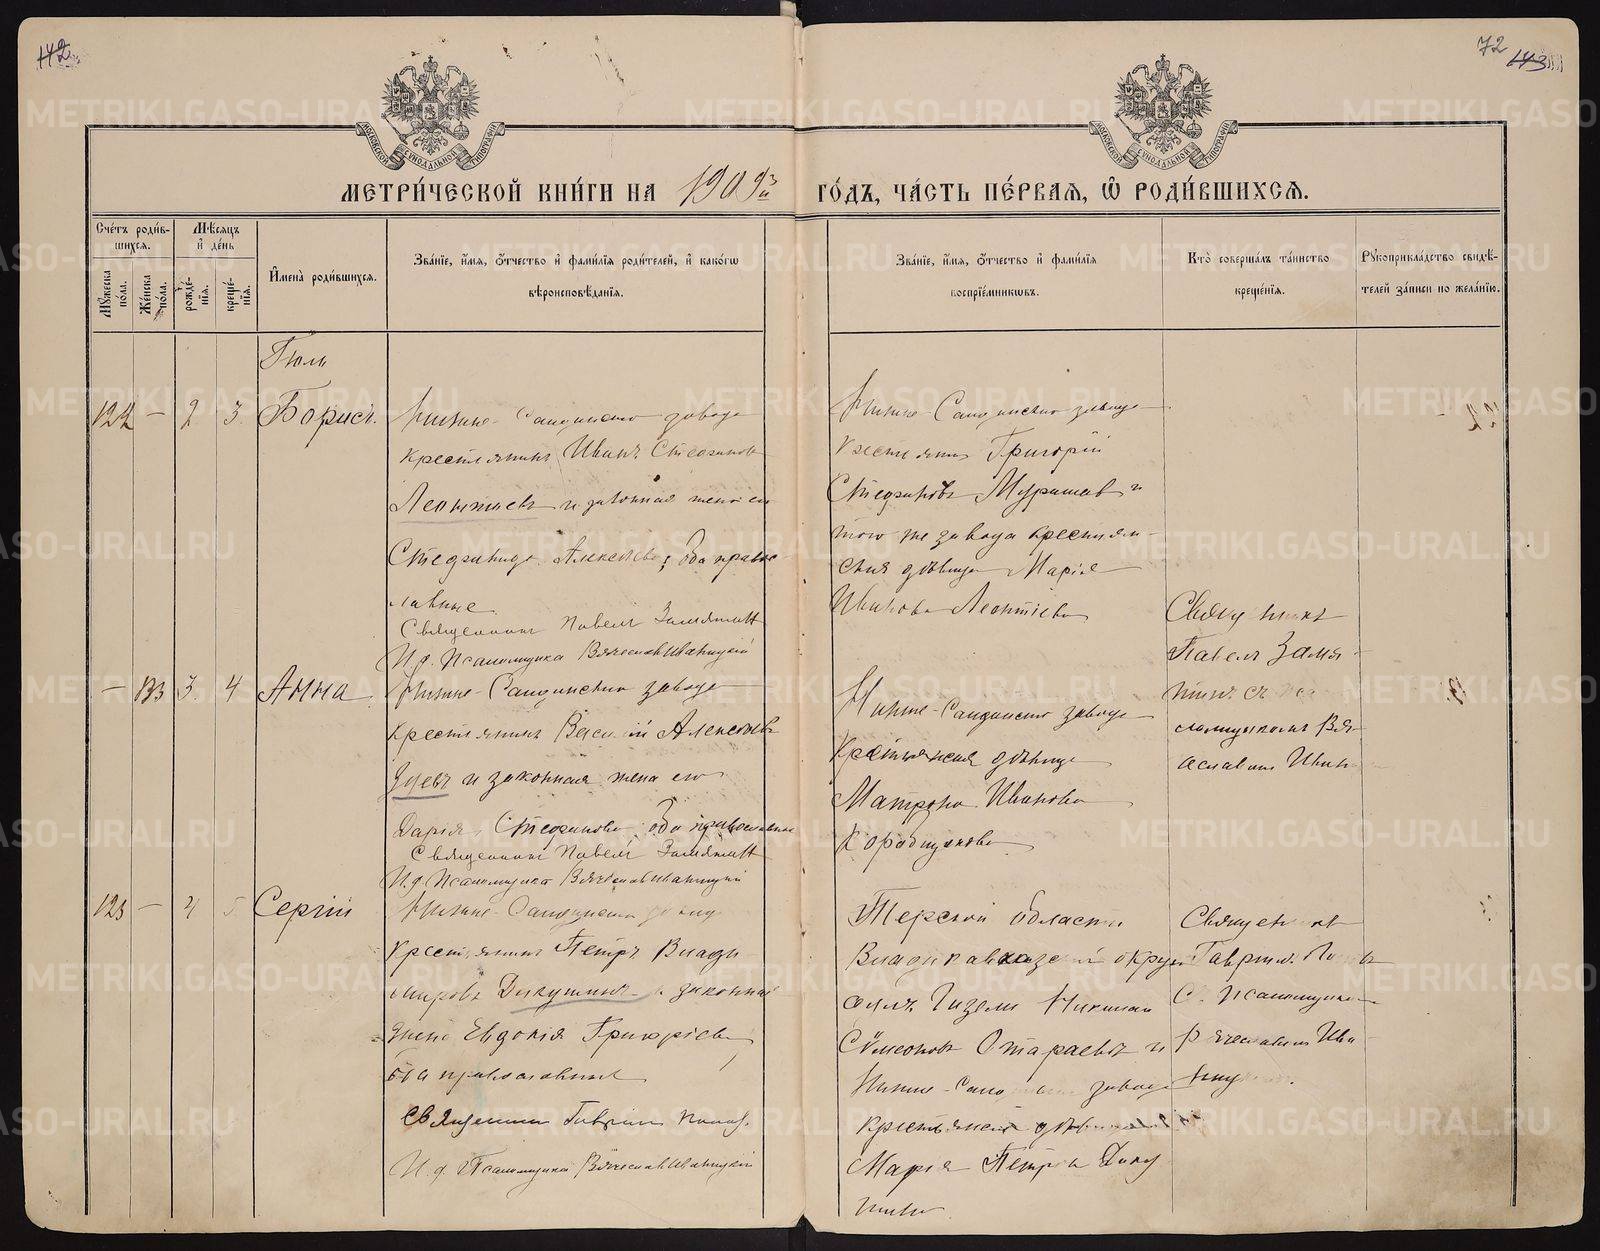 142
72
143
МОСКОВСКОЙ СѴНОДАЛЬНОЙ ТИПОГРАФІИ
МОСКОВСКОЙ СѴНОДАЛЬНОЙ ТИПОГРАФІИ
МЕТРИ́ЧЕСКОЙ КНИ́ГИ НА 1909 й ГО́ДЪ, ЧА́СТЬ ПЕ́РВАЯ, Ѽ РОДИ́ВШИХСЯ.
Сче́тъ роди́в-
шихся.
Мѣсяцъ
и де́нь
Му́жеска по́ла.
Же́нска по́ла.
рожде́-
нія.
креще́-
нія.
Имена̀ роди́вшихся.
Зва́ніе, и́мя, о́тчество и фами́лія роди́телей, и како́гѡ
вѣроисповѣ́данія.
Зва́ніе, и́мя, о́тчество и фами́лія
воспріе́мникѡвъ.
Кто̀ соверша́лъ та́инство
креще́нія.
Рукоприкла́дство свидѣ́-
телей за́писи по жела́нію.
Іюль
122 — 2 3. Борисъ.
Нижне-Салдинскаго завода
крестьянинъ Иванъ Стефановъ
Леонтьевъ и законная жена его
Стефанида Алексѣева, оба право-
славные
Священникъ Павелъ Замятинъ
И. д. Псаломщика Вячеславъ Иваницкій
Нижне-Салдинскаго завода
крестьянинъ Григорій
Стефановъ Мурашевъ и
того же завода крестьян-
ская дѣвица Марія
Иванова Леонтіева
Священникъ
Павелъ Замя-
тинъ съ пса-
ломщикомъ Вя-
чеславомъ Иван
— 133 3. 4 Анна
Нижне-Салдинскаго завода
крестьянинъ Василій Алексѣевъ
Зуевъ и законная жена его
Дарія Стефанова, оба православные
Священникъ Павелъ Замятинъ
И. д. Псаломщика Вячеславъ Иваницкій
Нижне-Салдинскаго завода
Крестьянская дѣвица
Матрона Иванова
Коробщикова
123 — 4 5 Сергій
Нижне-Салдинскаго завода
Крестьянинъ Петръ Влади-
міровъ Дикушинъ и законная
жена Евдокія Григоріева
оба православные
Священникъ Гавріилъ Попов.
И. д. Псаломщика Вячеславъ Иваницкій
Терской области
Владикавказскаго округа
Гизели Николай
Сѵмеоновъ Отараевъ и
Нижне-Салдинскаго завода
крестьянская дѣвица
Марія Петрова Дику-
шина
Священникъ
Гавріилъ Поповъ
съ Псаломщикомъ
Вячеславомъ Ива-
ницкимъ.
METRIKI.GASO-URAL.RU